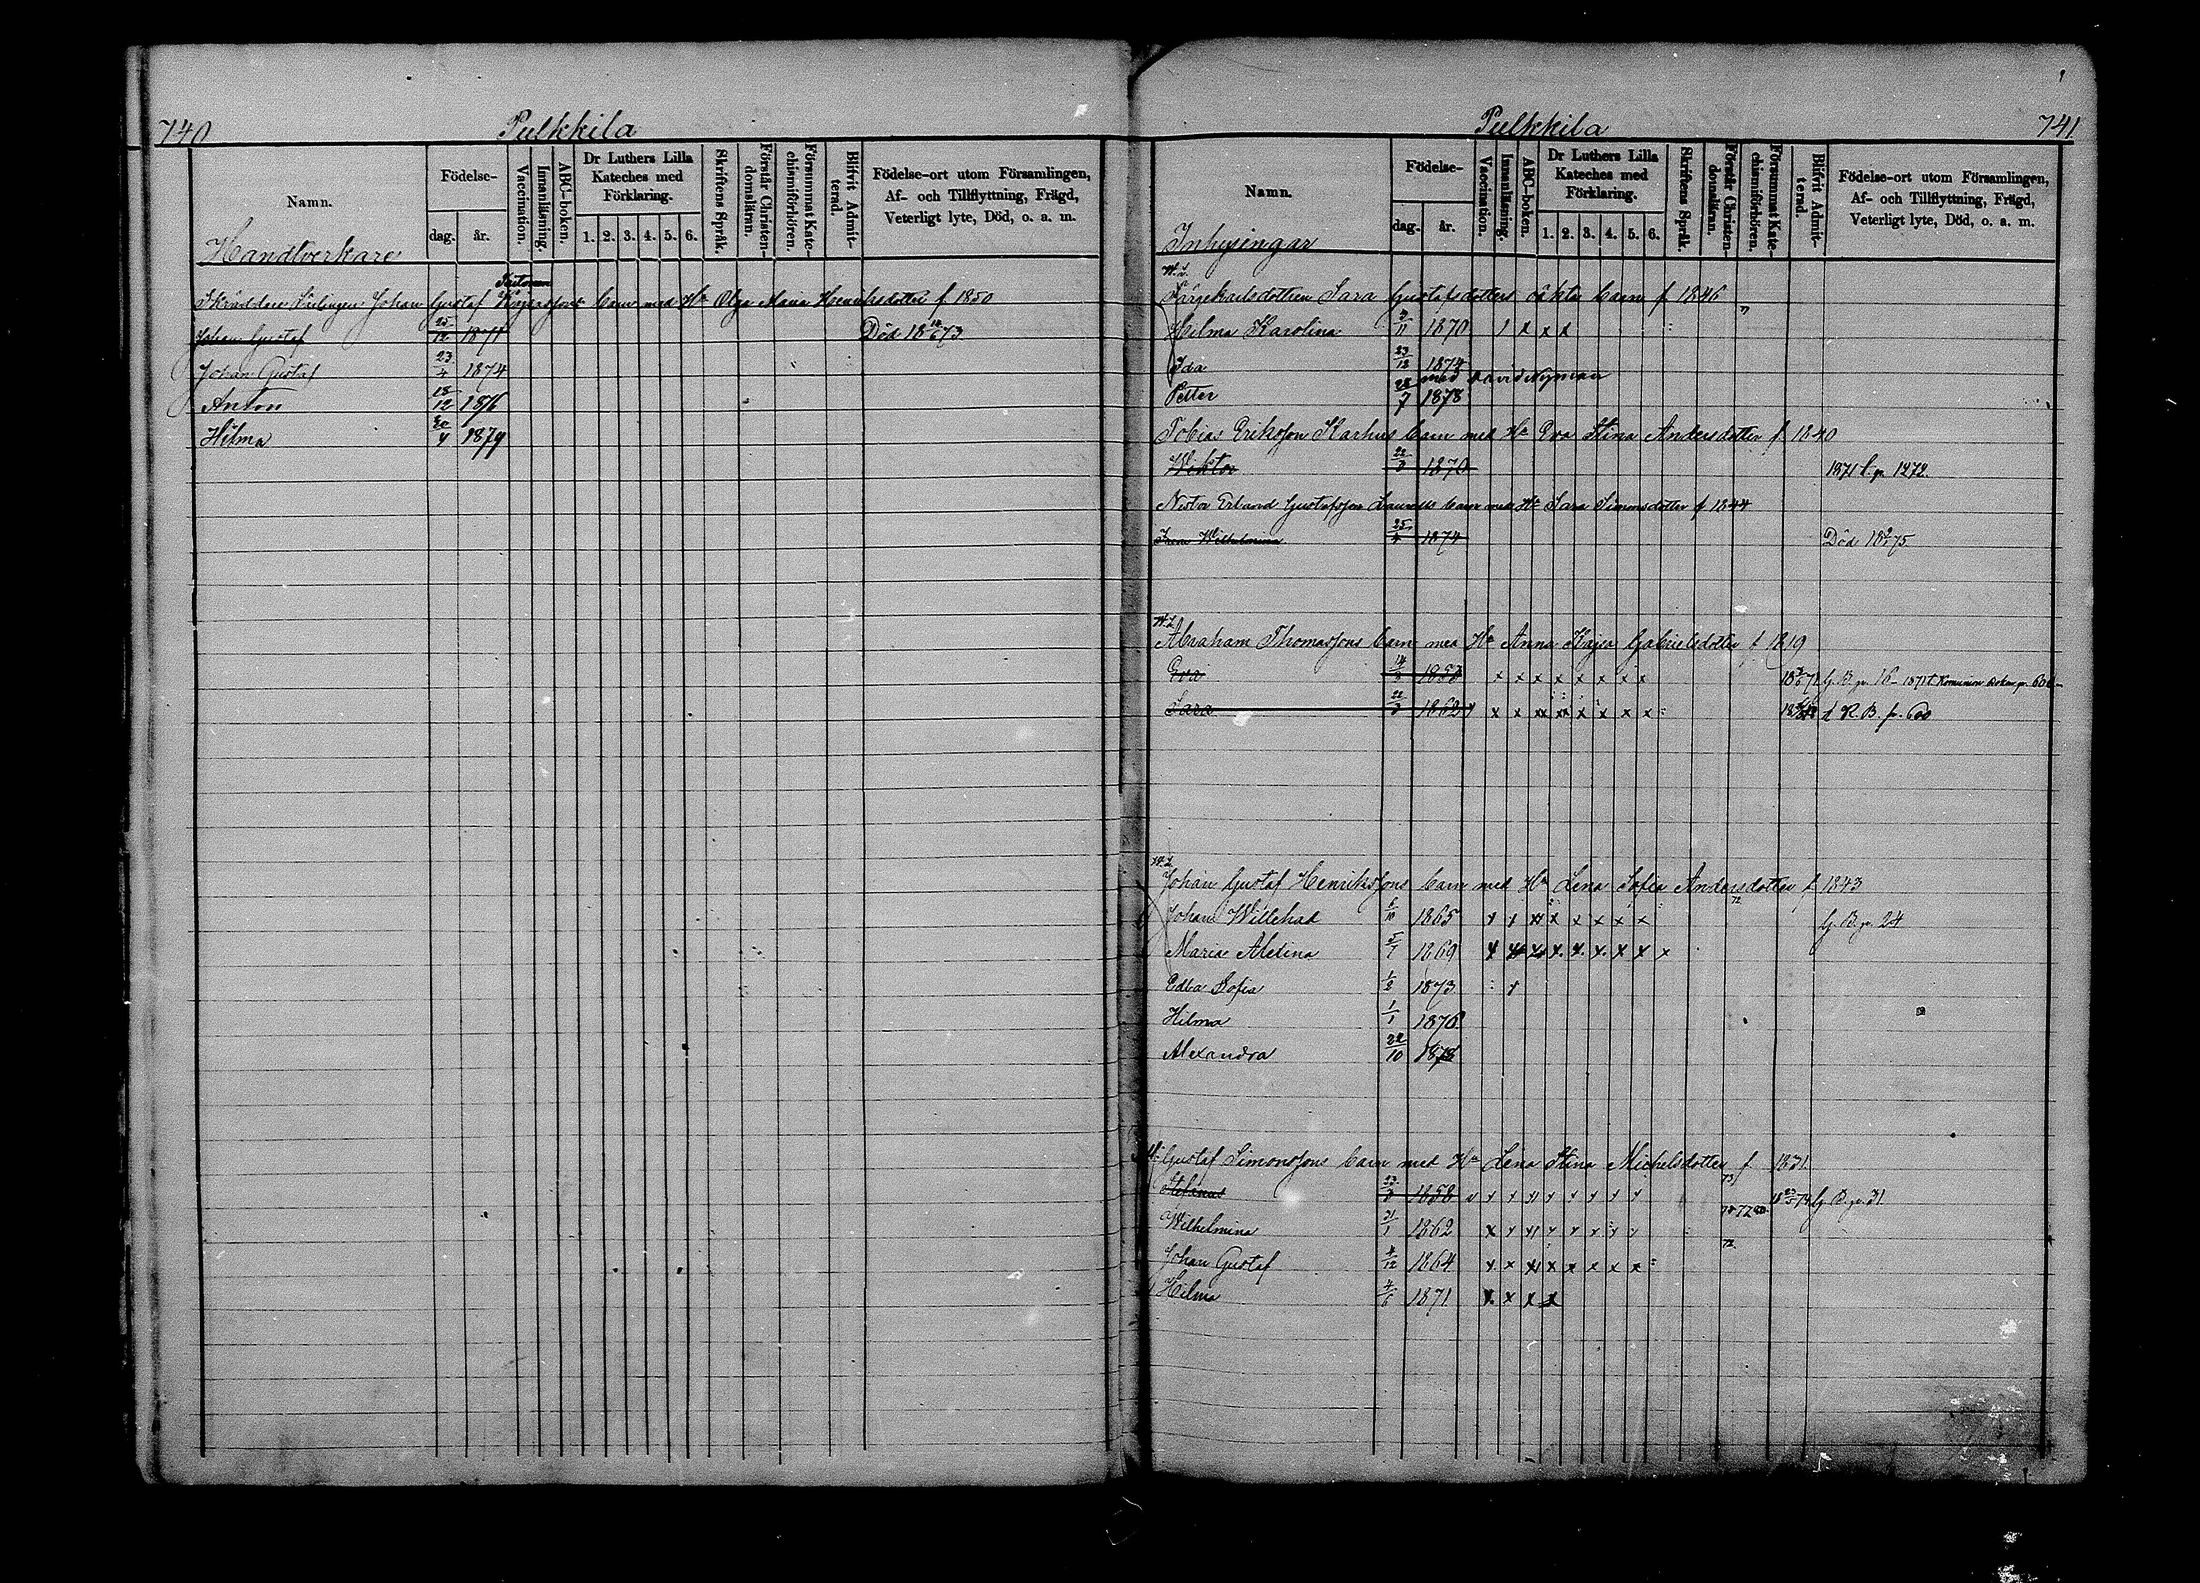 740
Pulkkila
Namn.
Födelse-
dag.
år.
Vaccination.
Innanläsning.
ABC-boken.
Dr Luthers Lilla
Kateches med
Förklaring.
1. 2. 3. 4. 5. 6.
Skriftens Språk.
Förstår Christen-
domsläran.
Försummat Kate-
chismiförhören.
Blifvit Admit-
terad.
Födelse-ort utom Församlingen,
Af- och Tillflyttning, Frägd,
Veterligt lyte, Död, o. a. m.
Handtverkare
Skräddare Johan Gustaf barn med Hu Olga Maria Henriksdotter f 1850
Johan Gustaf 25/12 1871 Död 18 /6 73
Johan Gustaf 23/4 1874
Anton 18/12 1876
Hilma 20/4 1879
Pulkkila
741
Namn.
Födelse-
dag.
år.
Vaccination.
Innanläsning.
ABC-boken.
Dr Luthers Lilla
Kateches med
Förklaring.
1. 2. 3. 4. 5. 6.
Skriftens Språk.
Förstår Christen-
domsläran.
Försummat Kate-
chismiförhören.
Blifvit Admit-
terad.
Födelse-ort utom Församlingen,
Af- och Tillflyttning, Frägd,
Veterligt lyte, Död, o. a. m.
Inhysingar
Sara Gustafsdotters oäkta barn f 1846
Hilma Karolina /11 1870 x x x
Ida 23/12 1874
med David Nyman
Petter 28/7 1878
Tobias Eriksson Karhus barn med Hu Eva Stina Andersdotter f 1840
Wiktor 22/3 1870 1871 1272
Nestor Erland Gustafsson barn med Hu Sara Simonsdotter f 1844
Wilhelmina 25/4 1874 Död 75
Abraham Thomassons barn med Hu Anna Kajsa Gabrielsdotter f 1819
Eva 1850 x x x x x x x x G. B. p. 16
Sara 22/3 1862 x x x x x x x x t K. B. p. 600
Johan Gustaf Henrikssons barn med Hu Lena Sofia Andersdotter f 1843
72
Johan Willehad 6/10 1865 x x x x x x x x G. B. p. 24
Maria Aletina 5/7 1869 x x x x x x x x x
Edla Sofia 1/2 1873 x
Hilma 1/1 1876
Alexandra 22/10 1878
Gustaf Simonssons barn med Hu Lena Stina Michelsdotter f 1831
73
23/3 1858 x x x x x x x x G. B. p. 31
Wilhelmina 21/1 1862 x x x x x x x x
72
Johan Gustaf 4/12 1864 x x x x x x x x
Hilma 4/6 1871 x x x x